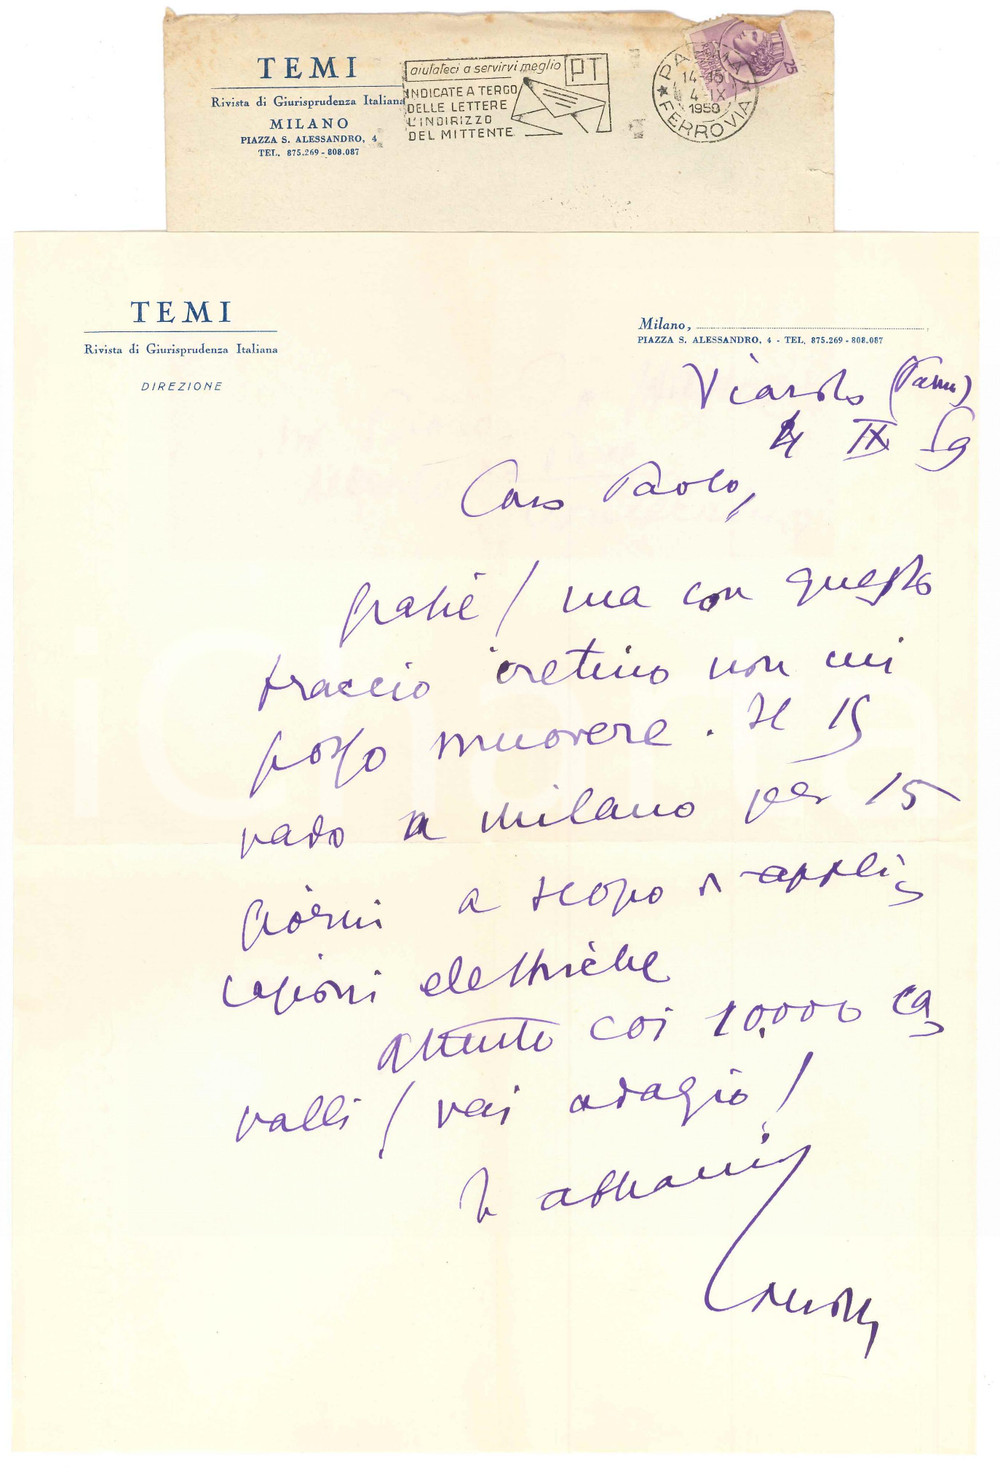 TEMI
Rivista di Giurisprudenza Italiana
MILANO
PIAZZA S. ALESSANDRO, 4
TEL. 875.269 - 808.087
aiutateci a servirvi meglio
PT
INDICATE A TERGO
DELLE LETTERE
L'INDIRIZZO
DEL MITTENTE
PARMA
14-15
4-IX
1959
FERROVIA
25
TEMI
Rivista di Giurisprudenza Italiana
DIREZIONE
Milano,
PIAZZA S. ALESSANDRO, 4 - TEL. 875.269 - 808.087
Viarolo (Parma)
4 IX 59
Caro Paolo,
grazie! ma con questo
braccio cretino non mi
posso muovere. Il 15
vado a Milano per 15
giorni a scopo appli
cazioni elettriche
attento coi 10.000 ca
valli! vai adagio!
Ti abbraccio